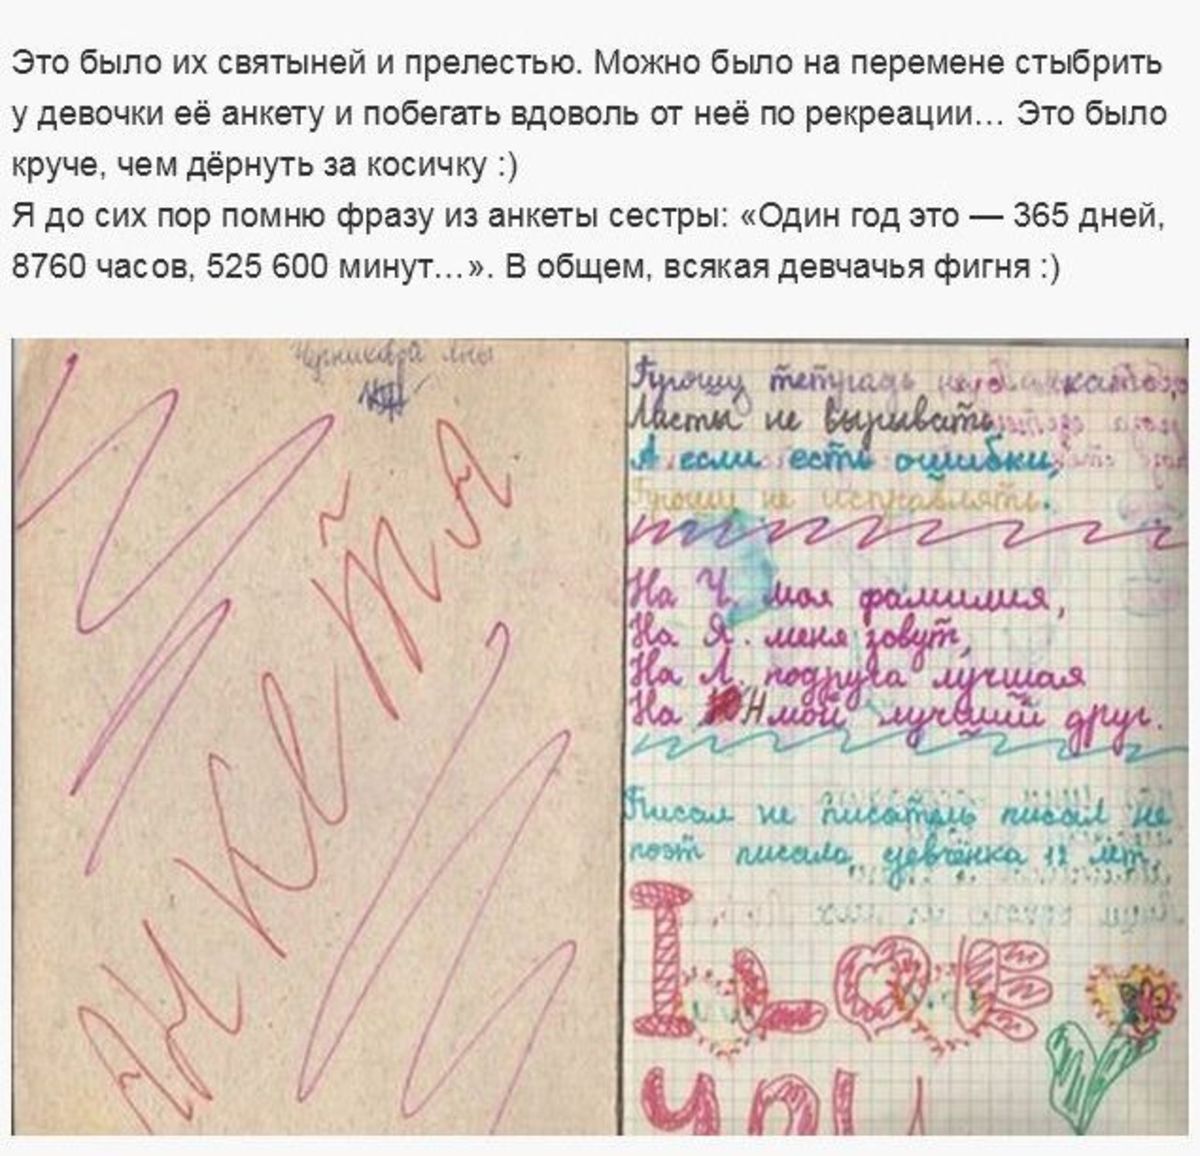 Это было их святыней и прелестью. Можно было на перемене стыбрить
у девочки её анкету и побегать вдоволь от неё по рекреации... Это было
круче, чем дёрнуть за косичку :)
Я до сих пор помню фразу из анкеты сестры: «Один год это — 365 дней,
8760 часов, 525 600 минут...». В общем, всякая девчачья фигня :)
Анкета
Прошу тетрадь не
Листы не вырывать
А если есть ошибки,
Прошу не исправлять.
На Ч. моя фамилия,
На Я. меня зовут,
На Л. подруга лучшая
На Н мой лучший друг.
Писал не писатель писал не
поэт писала девчёнка 12 лет.
I LOVE
YOU